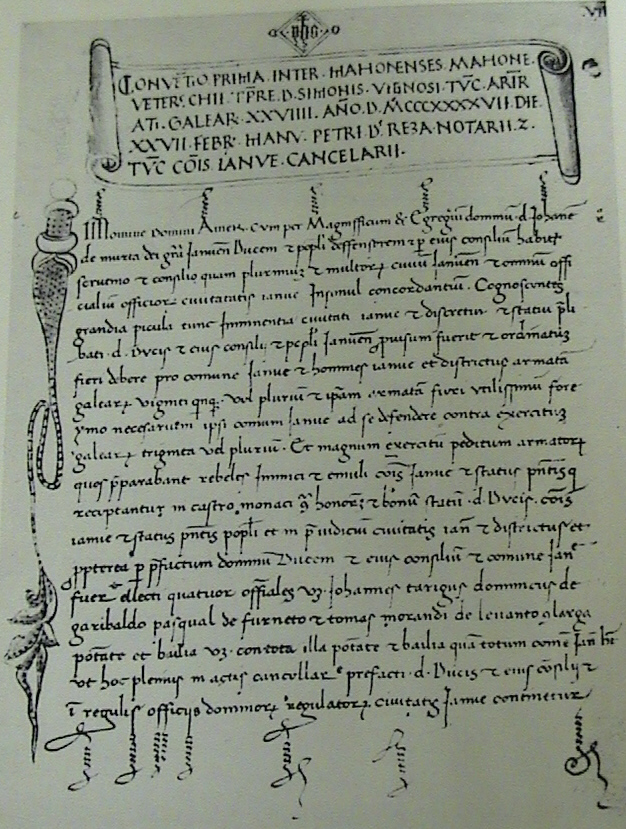 yhs
VII
CONVĒTIO PRIMA INTER · MAHONENSES MAHONE ·
VETERꝭ CHII T̄PRE · D. SIMONIS · VIGNOSI · TV̄C · ARM̄R
ATI · GALEAR · XXVIIII · AÑO · D · MCCCXXXXVII · DIE
XXVII · FEBRꝭ · MANV · PETRI · Dꝭ REZA · NOTARII · ⁊ ·
TV̄C CŌIS · IANVE · CANCELARII ·
In nomine Domini Amen. Cum per Magnifficum & Egregiū dominū · d · Johanē
de murta dei grā Januen̄ Ducem ⁊ popl̄i deffensorem ⁊ ꝑ eius consiliū habito
⁊ consilio quam plurimuꝫ ⁊ multoꝝ ciuiū Januen̄ ⁊ omniū offi
cialiū officioꝝ ciuitatis ianue Insimul concordantiū · Cognoscentes
grandia picula tunc Imminentia ciuitati ianue ⁊ districtui · ⁊ statui p̄li
bati · d · Ducis ⁊ eius consilij ⁊ popl̄i Januen̄ ꝓuisum fuerit ⁊ ordinatuꝫ
fieri debere pro comune Janue ⁊ hommes ianue et districtus armatā
galeaꝝ viginti qnqꝫ · vel pluriū ⁊ ip̄am armatā fieri vtilissimū fore
ymo necesariem ipsi comuni Janue ad se defendere contra exercituꝫ
galeaꝝ triginta vel pluriū · Et magnum exercitū peditum armatoꝝ
quos p̄parabant rebeles Inimici ⁊ emuli cōis Janue ⁊ status p̄ntis q
receptantur in castro monaci 9̄ honorē ⁊ bonū statū · d · Ducis · cōis
ianue ⁊ status p̄ntis popl̄i et in p̄iudiciū ciuitatis ian̄ ⁊ districtus et
ꝓpterea ꝑ p̄factum dominū Ducem ⁊ eius consiliū ⁊ comune Jan̄
fueꝝ electi quatuor offiales vꝫ · Johannes tarigus dominicus de
garibaldo pasqual de furneto ⁊ tomas morandi de leuanto 9 larga
potāte et bailia vꝫ · con tota illa potāte ⁊ bailia quā totum comē Jan̄ h̄t
vt hoc plenius in actis cancellarꝭ prefacti · d · Ducis ⁊ eius cōslij ⁊
ī regulis officijs dominoꝝ regulatoꝝ ciuitatis Janue continetur